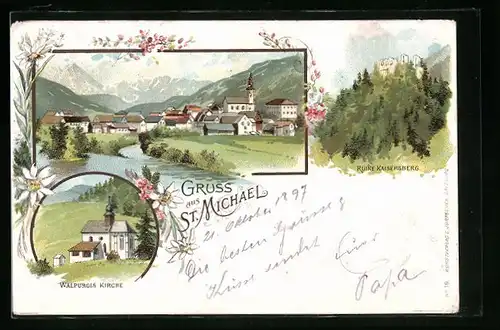 RUINE KAISERSBERG
GRUSS
aus
ST. MICHAEL
21. Oktober 1897
Die besten Grüsse &
Küsse sendet Euer
Papa
WALPURGIS KIRCHE